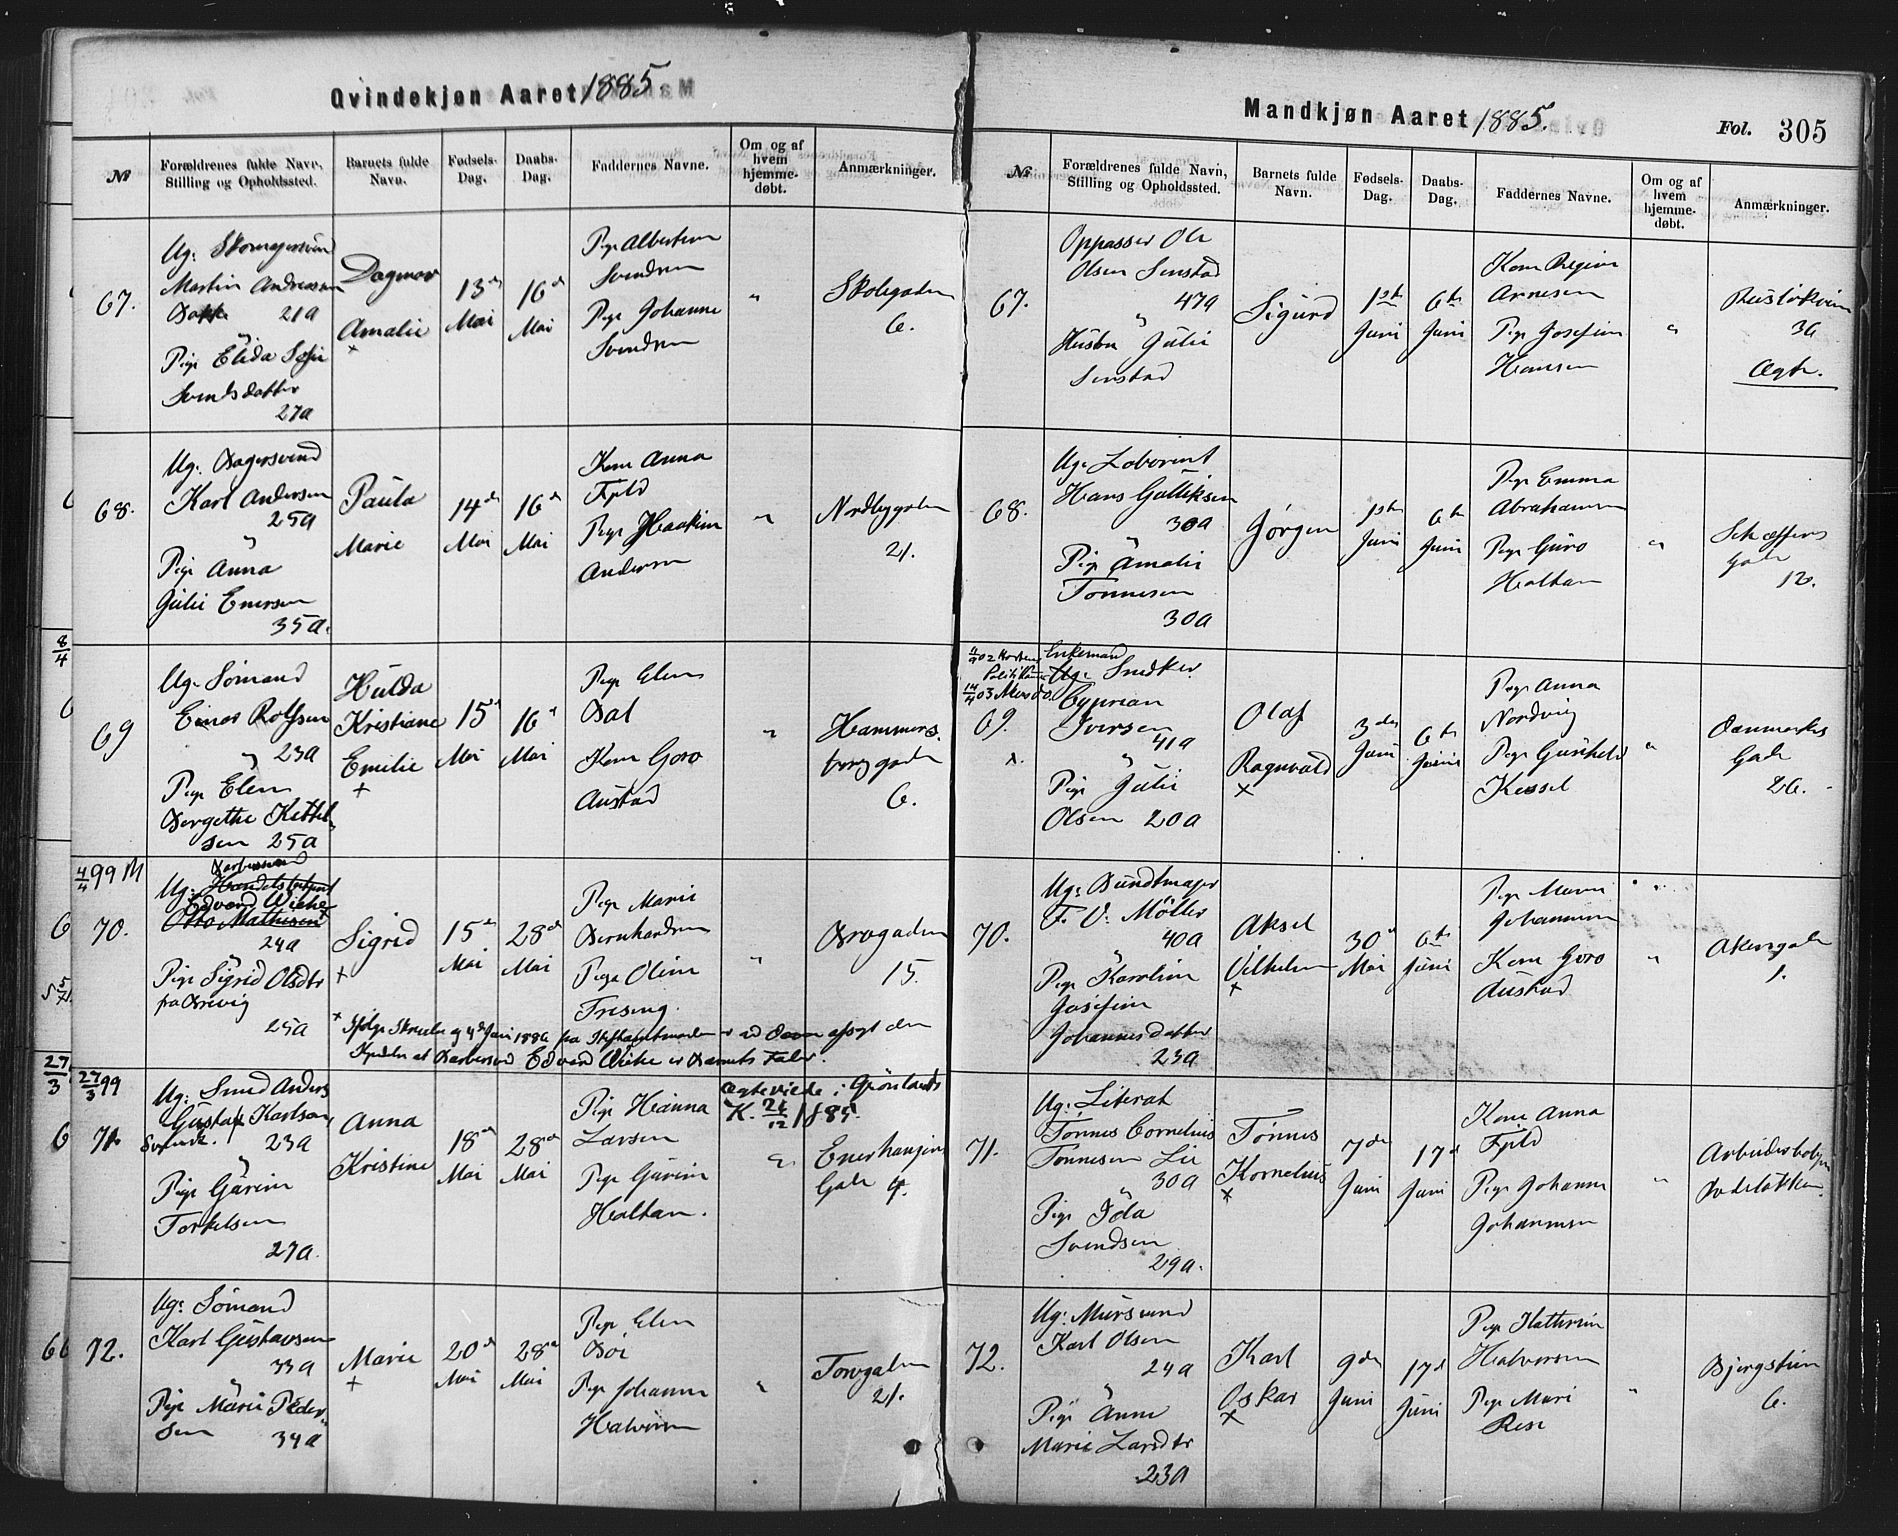 Qvindekjøn Aaret 1885
№
Forældrenes fulde Navn,
Stilling og Opholdssted.
Barnets fulde
Navn.
Fødsels-
Dag.
Daabs-
Dag.
Faddernes Navne.
Om og af
hvem
hjemme-
døbt.
Anmærkninger.
67.
Ug: Skomagersvend
Martin Andreassen
21a
"
Pige Elida Sofie
Svendsdatter
27a
Dagmar
Amalie
+
13de
Mai
16de
Mai
Pige Albertine
Svendsen
Pige Johanne
Svendsen
"
Skolegaden
6.
68.
Ug: Bagersvend
Karl Andersen
25a
"
Pige Anna
Julie Enersen
35a.
Paula
Marie
14de
Mai
16de
Mai
Kone Anna
Fjeld
Pige Haakine
Andersen
"
Nordbygaden
21.
69
Ug. Sømand
Einar Rolfsen
23a
"
Pige Elen
Bergethe Kittel-
sen 25a
Hulda
Kristiane
Emilie
+
15de
Mai
16de
Mai
Pige Elen
Dal
Kone Goro
Austad
"
Hammers-
borggaden
6.
4/4 99 M
70.
Barbersvend
Ug: Handelsbetjent
Edvard Wiche
Otto Mathisen
24a
"
Pige Sigrid Olsdtr
fra Brevig
25a
Sigrid
+
15de
Mai
28de
Mai
Pige Marie
Bernhardsen
Pige Oline
Fresing.
"
Brogaden
15.
+ Ifølge Skrivelse af 4de Juni 1886 fra Stiftamtmanden er ved Dom afsagt den
Kjendelse at Barbersvend Edvard Wiche er Barnets Fader.
27/3 99
71.
Ug: Smed Anders
Gustaf Karlson,
Svensk. 23a
"
Pige Gurine
Torkelsen
27a.
Anna
Kristine
18de
Mai
28de
Mai
Pige Hanna
Larsen
Pige Gurine
Holtan.
Ægteviede i Grønlands
K. 26/12 1885.
"
Enerhaugens
Gade 4.
72.
Ug: Sømand
Karl Gustavsen
33a
"
Pige Marie Peder-
sen 34a
Marie
+
20de
Mai
28de
Mai
Pige Elen
Bøe
Pige Johanne
Halvorsen
"
Torvgaden
21.
Mandkjøn Aaret 1885.
Fol. 305
№
Forældrenes fulde Navn,
Stilling og Opholdssted.
Barnets fulde
Navn.
Fødsels-
Dag.
Daabs-
Dag.
Faddernes Navne.
Om og af
hvem
hjemme-
døbt.
Anmærkninger.
67.
Oppasser Ole
Olsen Senstad
47a
"
Hustru Julie
Senstad
Sigurd
1ste
Juni
6te
Juni
Kone Regine
Arnesen
Pige Josefine
Hansen
"
Ruseløkveien
39
Ægte.
68.
Ug. Laborant
Hans Gulliksen
30a
"
Pige Amalie
Tønnesen
30a
Jørgen
1ste
Juni
6te
Juni
Pige Emma
Abrahamsen
Pige Guro
Holtan
"
Schæffers
gade
12.
69.
Enkemand
Ug. Snedker
Cyprian
Iversen
41a
"
Pige Julie
Olsen 20a
Olaf
Ragnvald
+
3die
Juni
6te
Juni
Pige Anna
Nordvig
Pige Gunhild
Kessel
"
Danmarks
Gade
26.
70.
Ug: Buntmager
F. V. Møller
40a
"
Pige Karoline
Josefine
Johannesdatter
23a
Aksel
Vilhelm
+
30te
Mai
6te
Juni
Pige Maren
Johannesen
Kone Goro
Austad
"
Akersgade
1.
71.
Ug: Literat
Tønnes Cornelius
Tønnesen Lie
30a
Pige Ida
Svendsen
29a.
Tønnes
Kornelius
+
7de
Juni
17de
Juni
Kone Anna
Fjeld
Pige Johanne
Johannesen
"
Arbeiderbolig
72.
Ug: Mursvend
Karl Olsen
24a
"
Pige Anne
Marie Larsdtr
23a
Karl
Oskar
+
9de
Juni
17de
Juni
Pige Kathrine
Halvorsen
Pige Mari
Rese
"
Bjergstien
6.